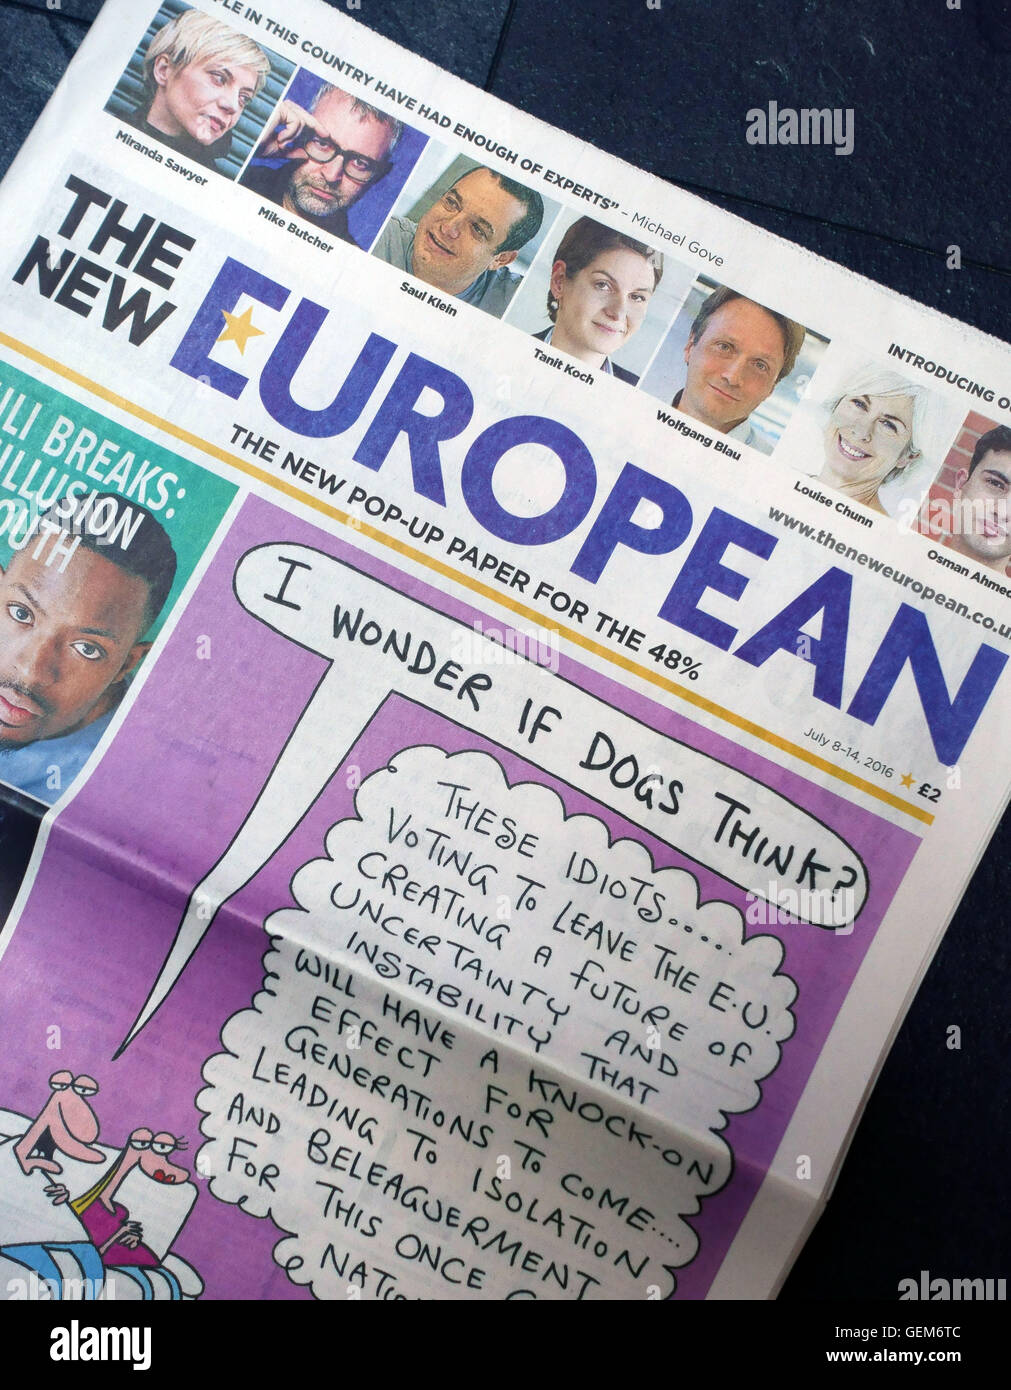 PLE IN THIS COUNTRY HAVE HAD ENOUGH OF EXPERTS" – Michael Gove
INTRODUCING
Miranda Sawyer
Mike Butcher
Saul Klein
Tanit Koch
Wolfgang Blau
Louise Chunn
Osman Ahmed
THE
NEW
EUROPEAN
www.theneweuropean.co.uk
THE NEW POP-UP PAPER FOR THE 48%
July 8–14, 2016 £2
BREAKS:
ILLUSION
OUTH
I WONDER IF DOGS THINK?
THESE IDIOTS.....
VOTING TO LEAVE THE E.U.
CREATING A FUTURE OF
UNCERTAINTY AND
INSTABILITY THAT
WILL HAVE A KNOCK-ON
EFFECT FOR
GENERATIONS TO COME...
LEADING TO ISOLATION
AND BELEAGUERMENT
FOR THIS ONCE
NATI
alamy
a
alamy
Image ID: GEM6TC
www.alamy.com